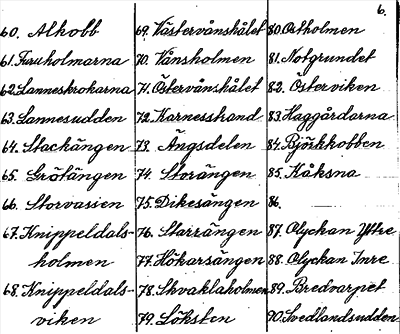 6.
60. Alkobb
61. Furuholmarna
62. Lanneskrokarna
63. Lannesudden
64. Stackängen
65. Grötängen
66. Storvassien
67. Knippeldals-
holmen
68. Knippeldals-
viken
69. Västervånskålet
70. Vånsholmen
71. Östervånskålet
72. Karnesshand
73. Ängsdelen
74. Storängen
75. Dikesängen
76. Starrängen
77. Hökarsängen
78. Skvaklaholmen
79. Löksten
80. Ostholmen
81. Notgrundet
82. Österviken
83. Haggårdarna
84. Björkkobben
85. Kåksna
86.
87. Olyckan Yttre
88. Olyckan Inre
89. Bredvarpet
90. Svedlandsudden